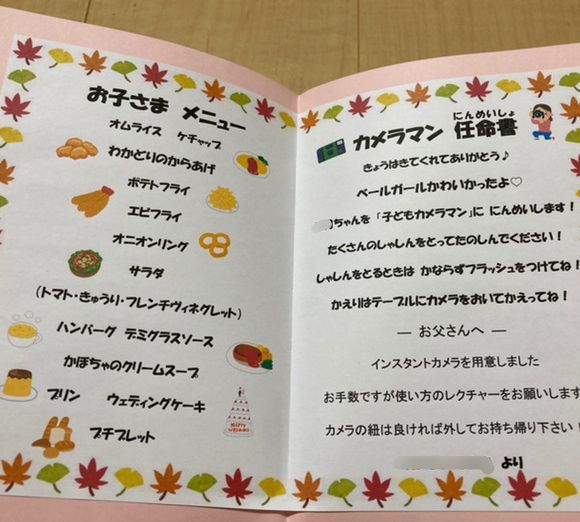 お子さま メニュー
オムライス ケチャップ
わかどりのからあげ
ポテトフライ
エビフライ
オニオンリング
サラダ
(トマト・きゅうり・フレンチヴィネグレット)
ハンバーグ デミグラスソース
かぼちゃのクリームスープ
プリン ウェディングケーキ
プチブレット
にんめいしょ
カメラマン 任命書
きょうはきてくれてありがとう♪
ベールガールかわいかったよ♡
ちゃんを「子どもカメラマン」に にんめいします!
たくさんのしゃしんをとってたのしんでください!
しゃしんをとるときは かならずフラッシュをつけてね!
かえりはテーブルにカメラをおいてかえってね!
― お父さんへ ―
インスタントカメラを用意しました
お手数ですが使い方のレクチャーをお願いします
カメラの紐は良ければ外してお持ち帰り下さい!
より